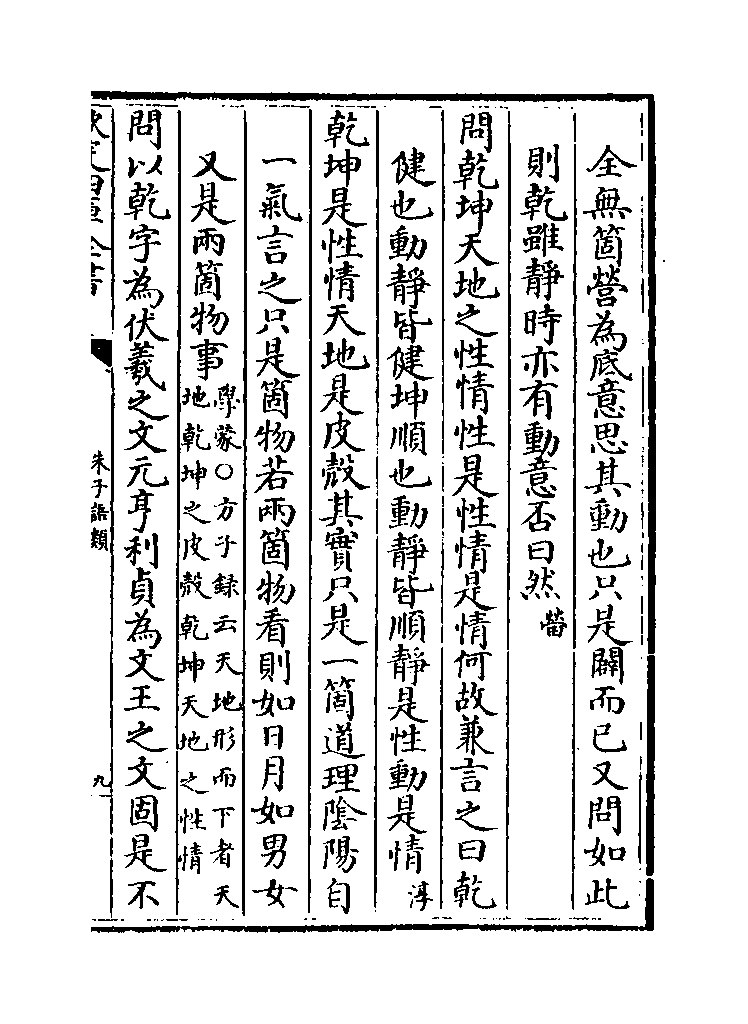 全無箇營為底意思其動也只是闢而已又問如此
則乾雖靜時亦有動意否曰然㽦
問乾坤天地之性情性是性情是情何故兼言之曰乾
健也動靜皆健坤順也動靜皆順靜是性動是情淳
乾坤是性情天地是皮殼其實只是一箇道理陰陽自
一氣言之只是箇物若兩箇物看則如日月如男女
又是兩箇物事學蒙○方子録云天地形而下者天
地乾坤之皮殼乾坤天地之性情
問以乾字為伏羲之文元亨利貞為文王之文固是不
欽定四庫全書
朱子語類
九